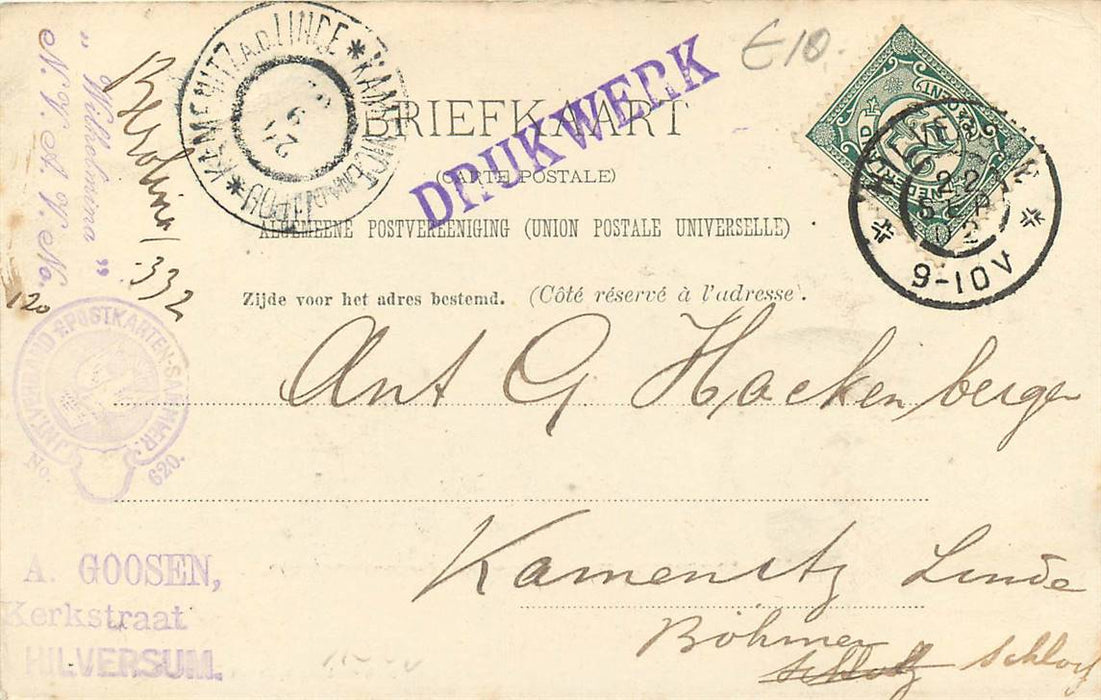 „ Wilhelmina ”
N. V. A. V. No. 120
Berolina 332
KAMENITZ A.D. LINDE * KAMENICE
DRIJKWERK
€10.
BRIEFKAART
(CARTE POSTALE)
ALGEMEENE POSTVEREENIGING (UNION POSTALE UNIVERSELLE)
Zijde voor het adres bestemd. (Côté réservé à l'adresse.
HILVERSUM
22
SEP
2
9-10V
POSTKARTEN-SAMMLER.
No. 620.
Ant G Hackenberger
Kamenitz Linde
Böhmen
Schloß
A. GOOSEN,
Kerkstraat
HILVERSUM.